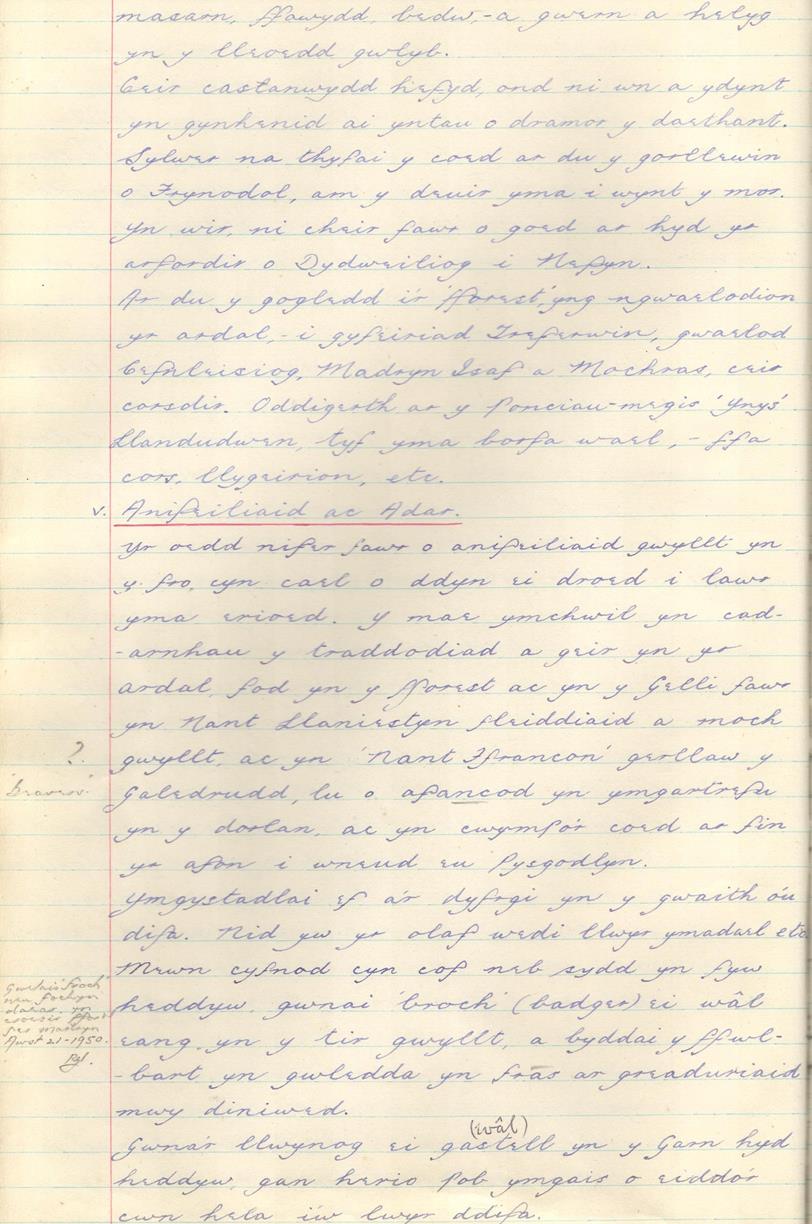 masarn, ffawydd, bedw, - a gwern a helyg
yn y lleoedd gwlyb.
Ceir castanwydd hefyd, ond ni wn a ydynt
yn gynhenid ai yntau o dramor y daethant.
Sylwer na thyfai y coed ar du y gorllewin
o Frynodol, am y deuir yma i wynt y mor.
Yn wir, ni cheir fawr o goed ar hyd yr
arfordir o Dydweiliog i Nefyn.
Ar du y gogledd i'r 'fforest', yng ngwaelodion
yr ardal, - i gyfeiriad Treferwin, gwaelod
Cefnleisiog, Madryn Isaf a Mochras, ceir
corsdir. Oddigerth ar y Ponciau - megis 'Ynys'
Llandudwen, tyf yma borfa wael, - ffa
cors, llygeirion, etc.
v. Anifeiliaid ac Adar.
Yr oedd nifer fawr o anifeiliaid gwyllt yn
y fro, cyn cael o ddyn ei droed i lawr
yma erioed. Y mae ymchwil yn cad-
-arnhau y traddodiad a geir yn yr
ardal, fod yn y fforest ac yn y Gelli fawr
yn Nant Llaniestyn fleiddiaid a moch
? gwyllt, ac yn 'Nant Ffrancon' gerllaw y
'beavers' Galedrudd, lu o afancod yn ymgartrefu
yn y dorlan, ac yn cwympo'r coed ar fin
yr afon i wneud eu pysgodlyn.
Ymgystadlai ef a'r dyfrgi yn y gwaith o'u
difa. Nid yw yr olaf wedi llwyr ymadael etc.
Mewn cyfnod cyn cof neb sydd yn fyw
heddyw, gwnai 'broch' (badger) ei wâl
eang yn y tir gwyllt, a byddai y ffwl-
-bart yn gwledda yn fras ar greaduriaid
mwy diniwed.
Gwelais froch
neu fochyn
daear yn
croesi'r ffordd
ger Madryn
Awst 21 - 1950.
(wâl)
Gwna'r llwynog ei gastell yn y Garn hyd
heddyw, gan herio pob ymgais o eiddo'r
cwn hela i'w lwyr ddifa.